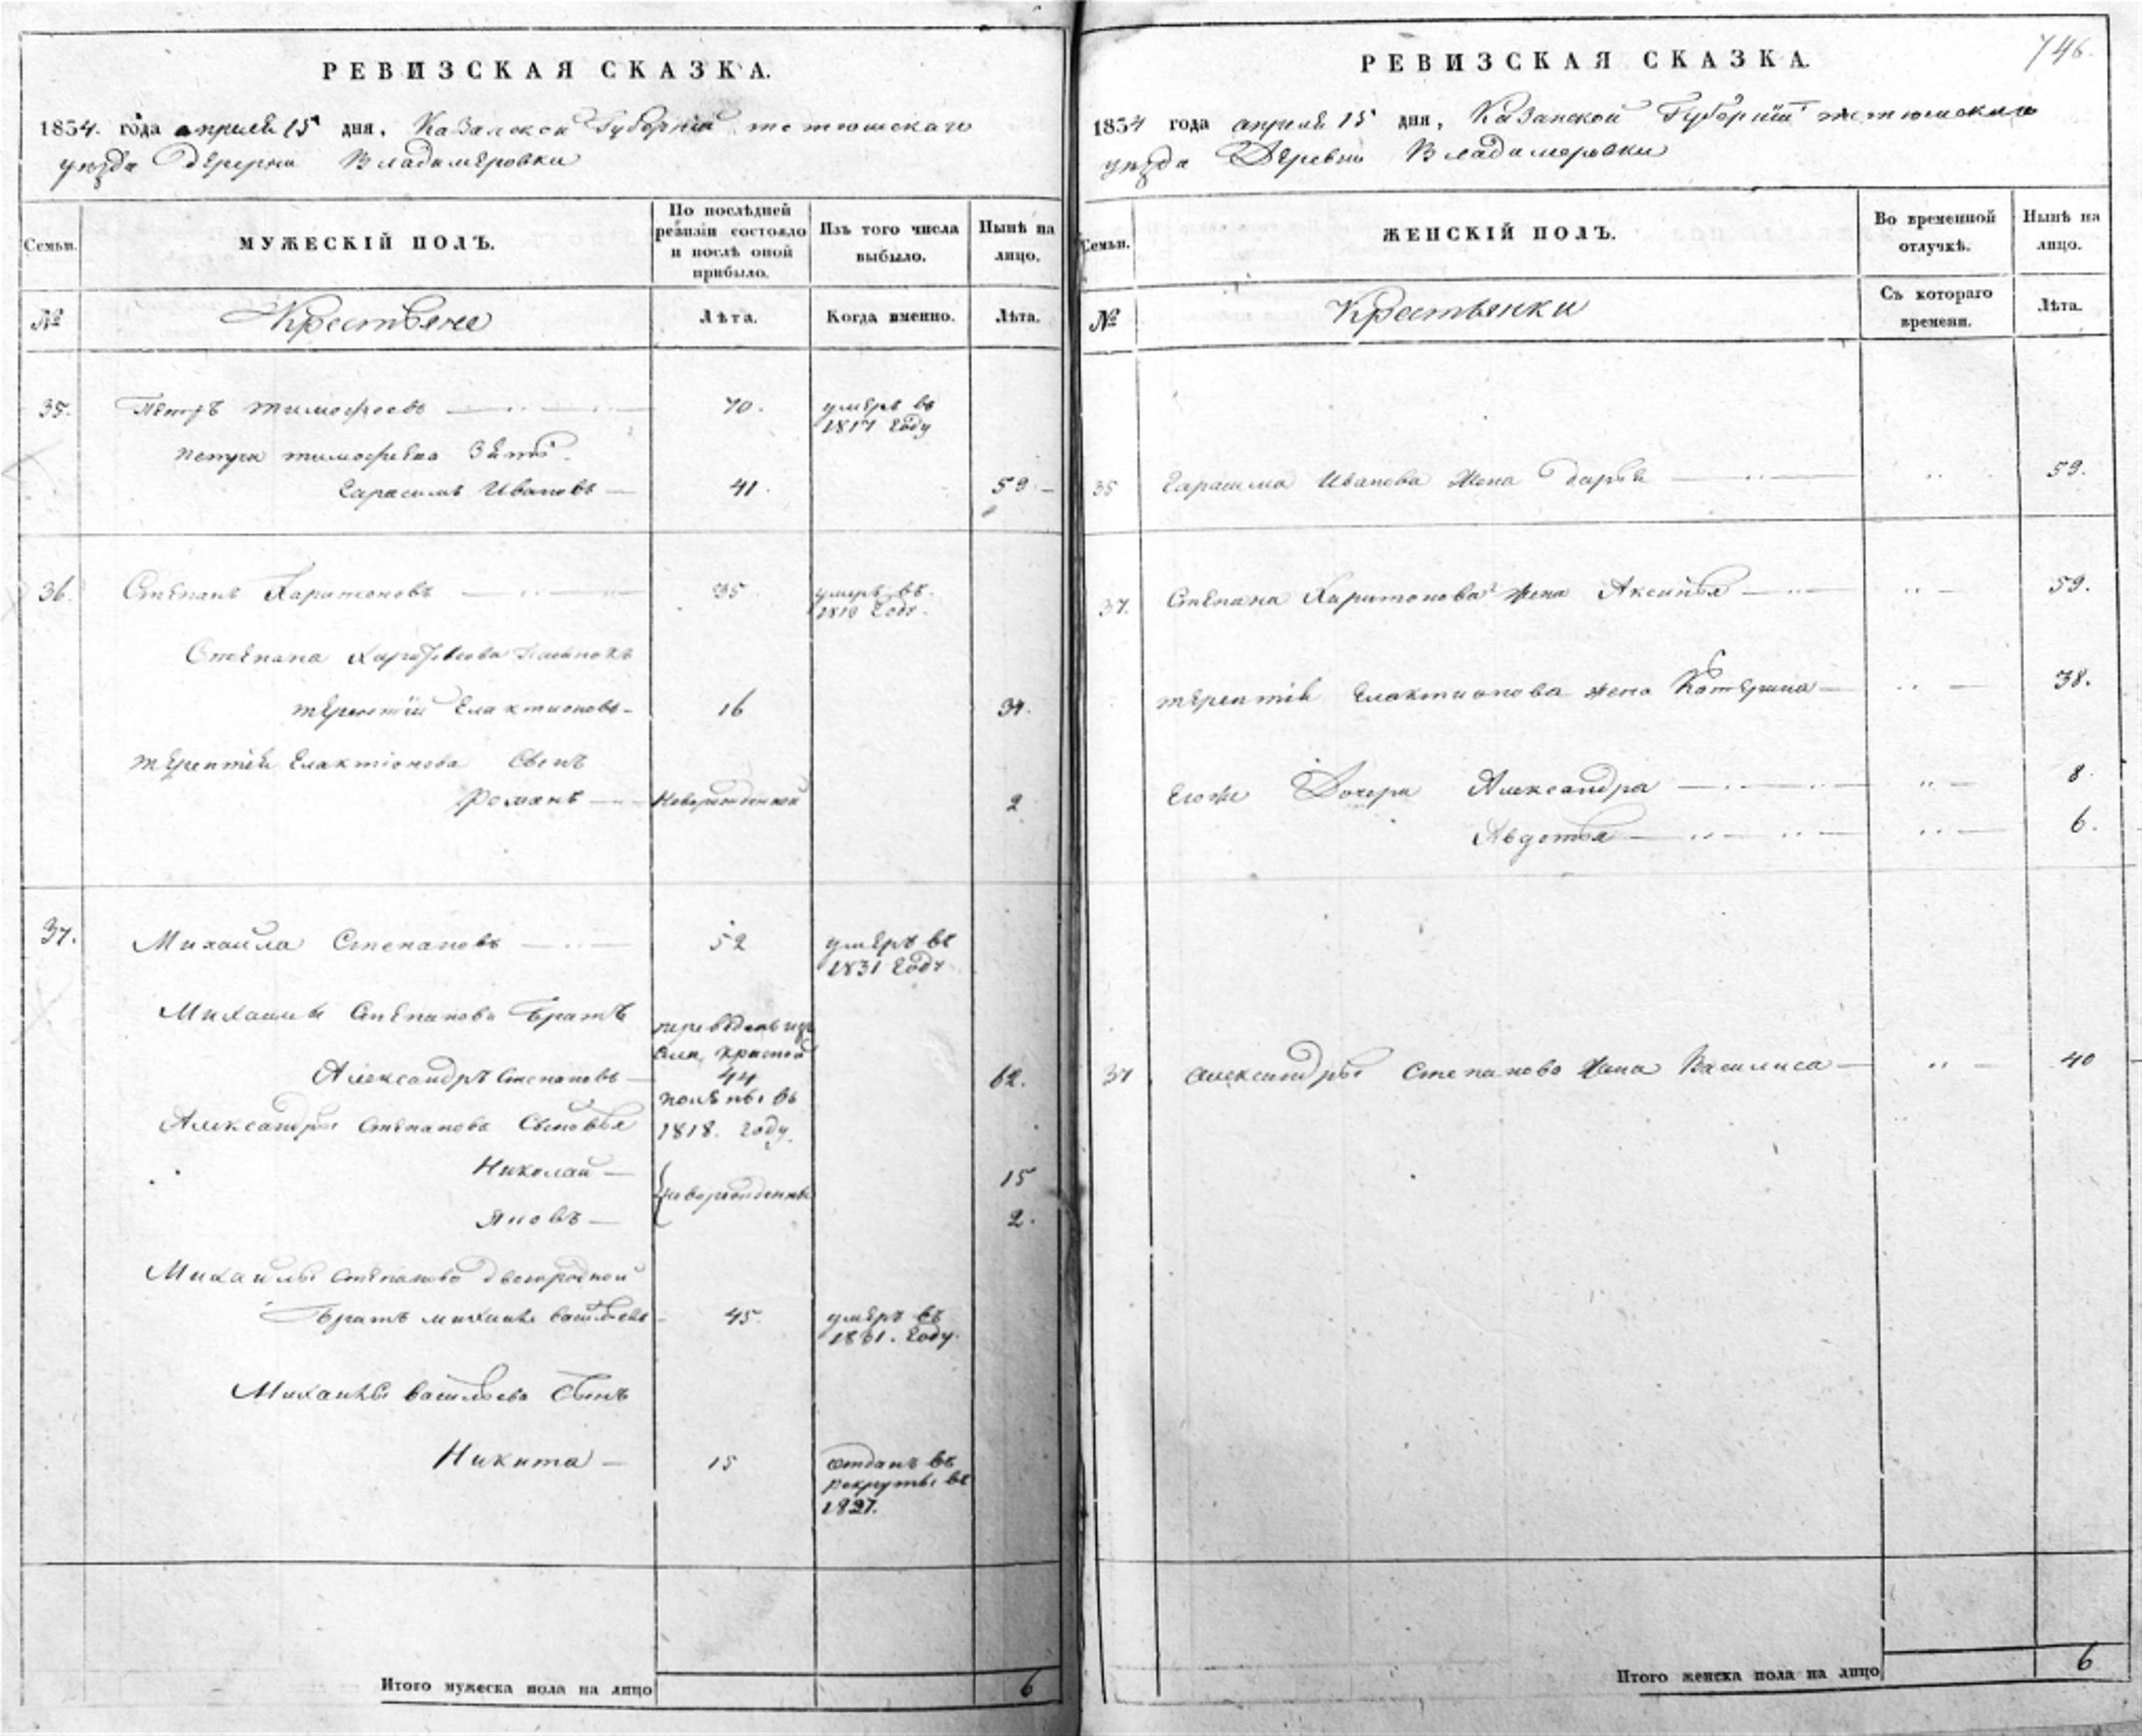 РЕВИЗСКАЯ СКАЗКА.
1854. года апреля 15 дня, Казанской Губернии тетюшскаго
уезда Деревни Владимеровки
Семьи.
МУЖЕСКІЙ ПОЛЪ.
По послѣдней
ревизіи состояло
и послѣ оной
прибыло.
Изъ того числа
выбыло.
Нынѣ на
лицо.
№
Крестьяне
Лѣта.
Когда именно.
Лѣта.
35. Петръ тимофеевъ 70. умеръ въ
1817 году
петра тимофеева Зять
Гарасимъ Ивановъ 41. 59
36. Степанъ Харитоновъ 35 умеръ въ
году
Степана
терентий Елактионовъ 16 34.
терентия Елактіонова Сынъ
Романъ Новорожденной 2
37. Михайла Степановъ 52 умеръ въ
1831 году
Михаилы Степанова братъ
переведенъ из
Александръ Степановъ 44 62.
въ
Александры Степанова Сыновья 1818. году
Николай 15
новорожденны
Яковъ 2.
Михаилы степанова двоюродной
братъ михаила васильевъ 45. умеръ въ
1831. году.
Михаилы васильева Сынъ
Никита 15 отданъ въ
рекруты въ
1827.
Итого мужеска пола на лицо 6
746.
РЕВИЗСКАЯ СКАЗКА.
1854 года апреля 15 дня, Казанской Губернии тетюшскаго
уезда Деревни Владимеровки
Семьи.
ЖЕНСКІЙ ПОЛЪ.
Во временной
отлучкѣ.
Нынѣ на
лицо.
№
Крестьянки
Съ котораго
времени.
Лѣта.
35 Гарасима Иванова жена дарья 59.
37. Степана Харитонова жена Аксинья 59.
терентия Елактионова жена Катерина 38.
Егоже Дочери Александра 8.
Авдотья 6.
37 Александры Степанова жена Василиса 40
Итого женска пола на лицо 6